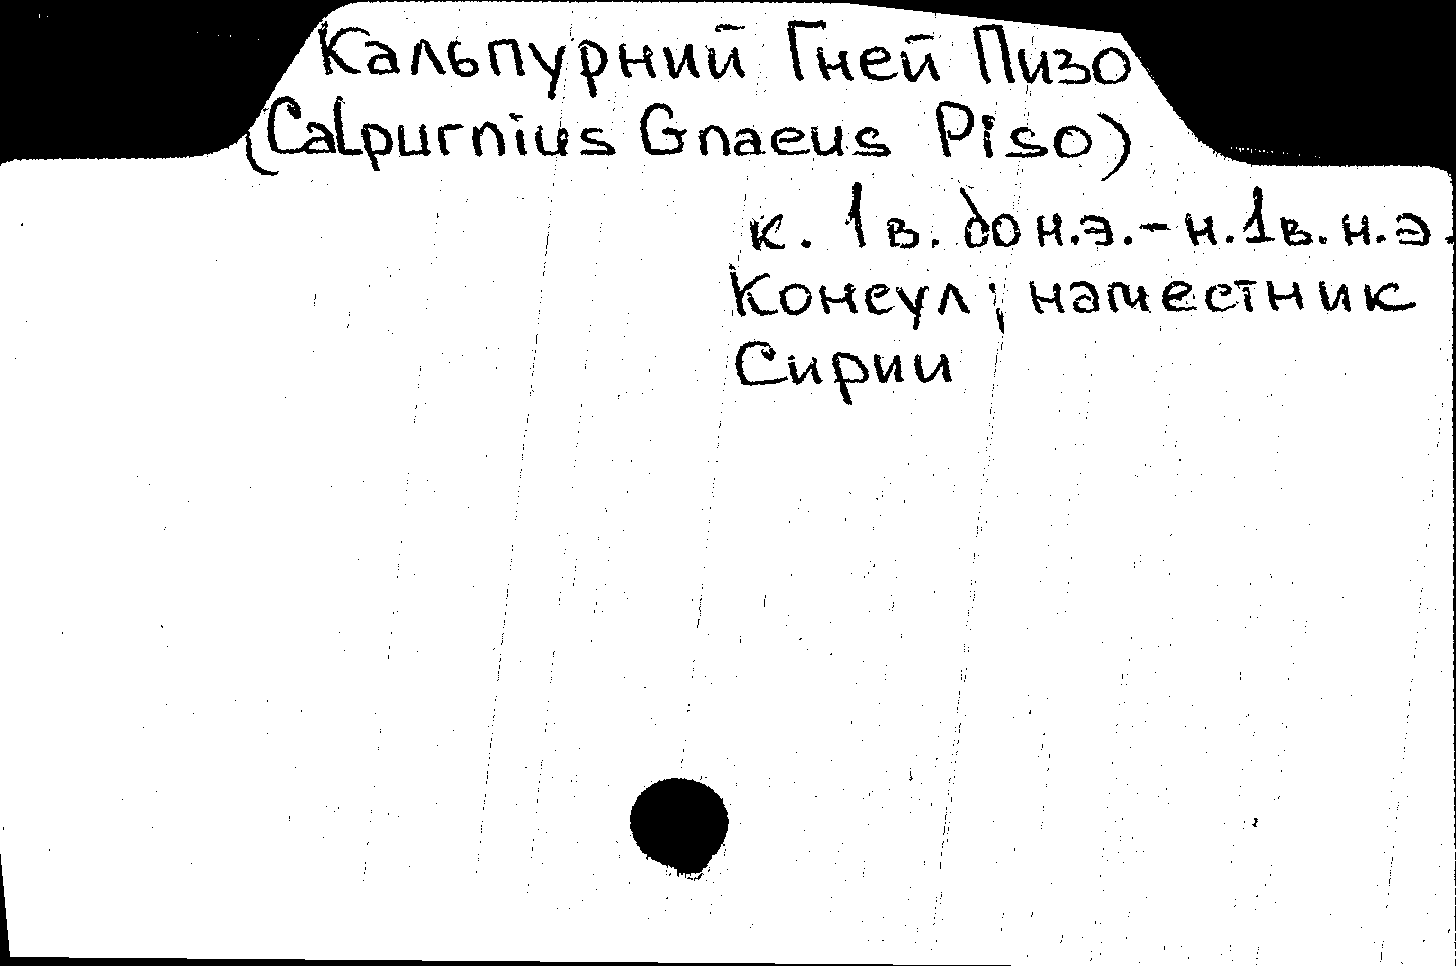 Кальпурний Гней Пизо
(Calpurnius Gnaeus Piso)
к. 1 в. до н.э. – н. 1 в. н.э.
Консул; наместник
Сирии